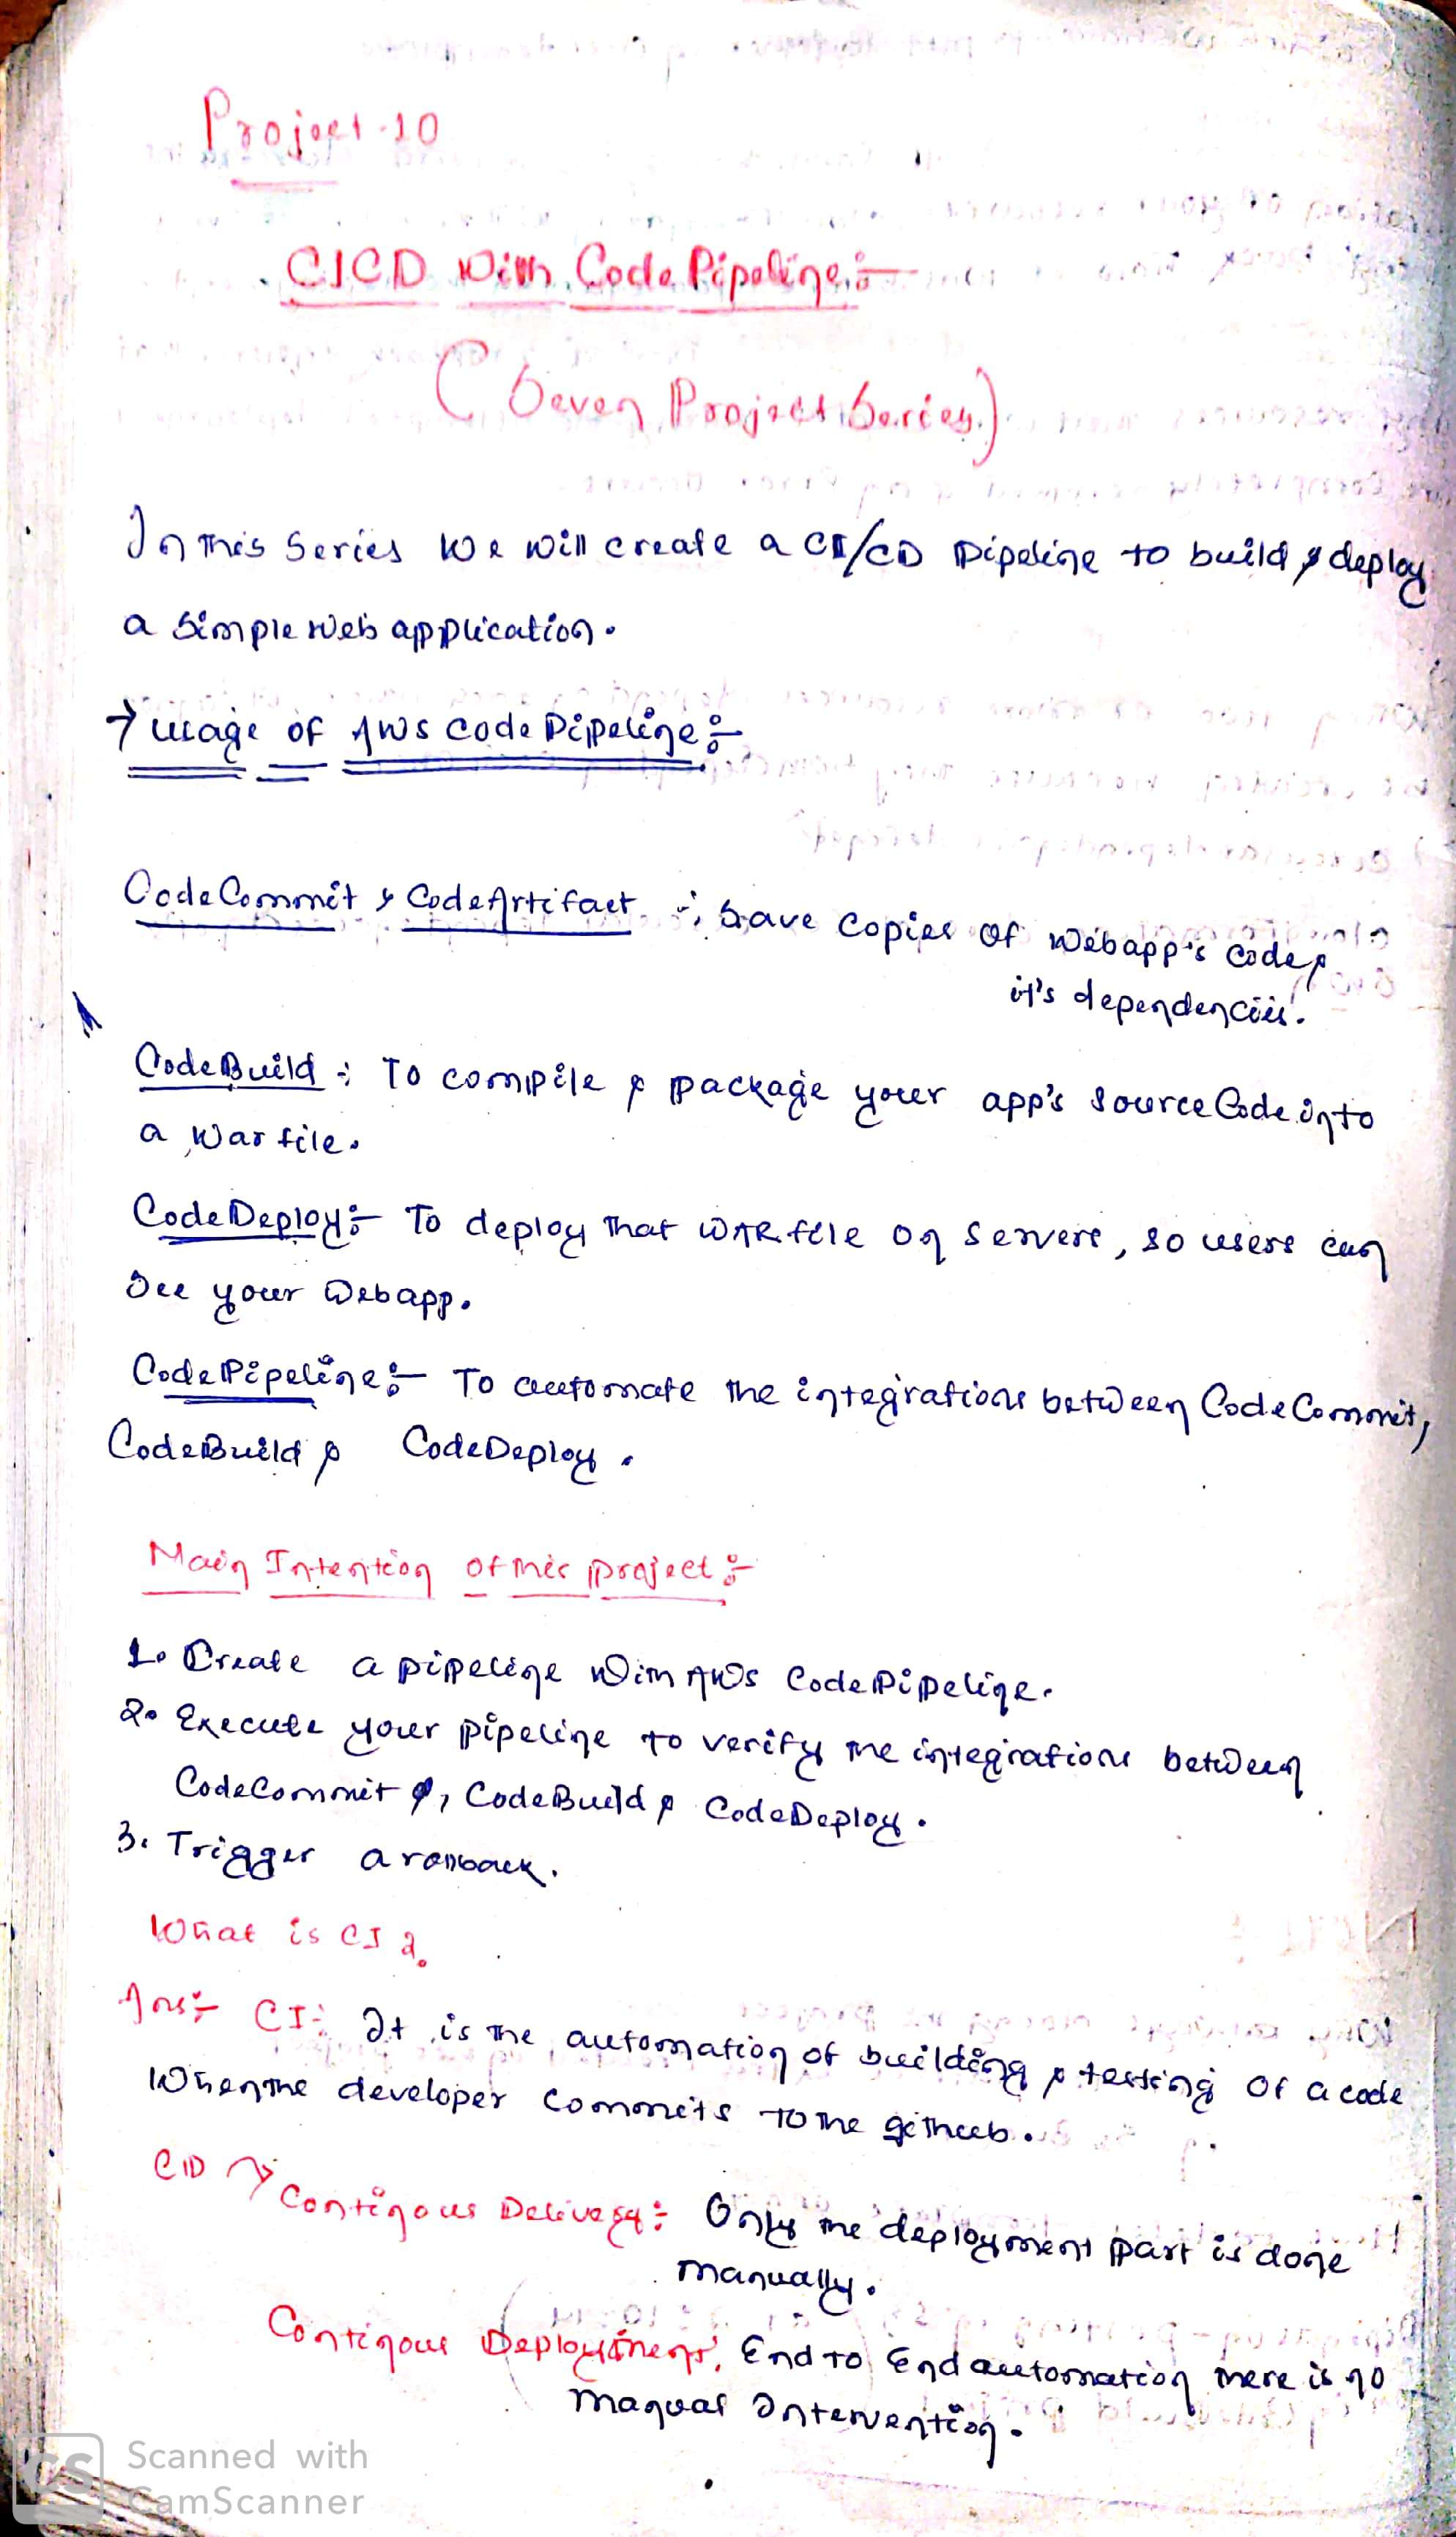 Project-10
CICD With Code Pipeline:-
(Seven Project Series)
In this Series We will create a CI/CD Pipeline to build & deploy
a Simple web application.
→ usage of AWS Code Pipeline:-
CodeCommit & CodeArtifact :- Save Copies of Webapp's code &
it's dependencies.
CodeBuild :- To compile & package your app's Source Code into
a War file.
CodeDeploy:- To deploy that WAR file on servers, so users can
See your Webapp.
CodePipeline:- To automate the integrations between CodeCommit,
CodeBuild & CodeDeploy.
Main Intention of this project:-
1. Create a pipeline with AWS CodePipeline.
2. Execute your pipeline to verify the integrations between
CodeCommit , CodeBuild & CodeDeploy.
3. Trigger a rollback.
What is CI ?
Ans:- CI:- It is the automation of building & testing of a code
When the developer Commits to the github.
CD → Continous Delivery:- Only the deployment part is done
manually.
Continous Deployment: End to End automation there is no
manual Intervention.
CS Scanned with
CamScanner